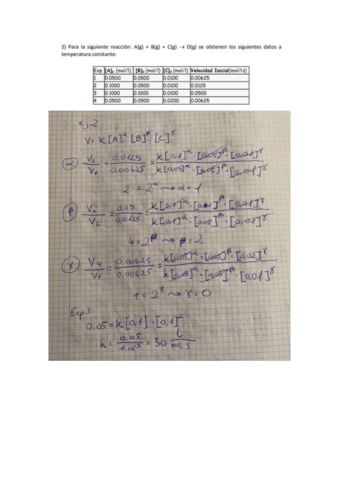 2) Para la siguiente reacción: A(g) + B(g) + C(g) → D(g) se obtienen los siguientes datos a
temperatura constante:
Exp [A]₀ (mol/l) [B]₀ (mol/l) [C]₀ (mol/l) Velocidad Inicial(mol/ls)
1 0.0500 0.0500 0.0100 0.00625
2 0.1000 0.0500 0.0100 0.0125
3 0.1000 0.1000 0.0100 0.0500
4 0.0500 0.0500 0.0200 0.00625
ej 2
V = K[A]^α [B]^β [C]^γ
α) V₂/V₁ = 0.0125/0.00625 = K[0,1]^α · [0,05]^β · [0,01]^γ / K[0,05]^α · [0,05]^β · [0,01]^γ
2 = 2^α → α = 1
β) V₃/V₂ = 0.05/0.0125 = K[0,1]^α · [0,1]^β · [0,01]^γ / K[0,1]^α · [0,05]^β · [0,01]^γ
4 = 2^β → β = 2
γ) V₄/V₁ = 0,00625/0,00625 = K[0,05]^α · [0,05]^β · [0,02]^γ / K[0,05]^α · [0,05]^β · [0,01]^γ
1 = 2^γ → γ = 0
Exp 3
0,05 = K [0,1] · [0,1]²
K = 0.05/1·10⁻³ = 50